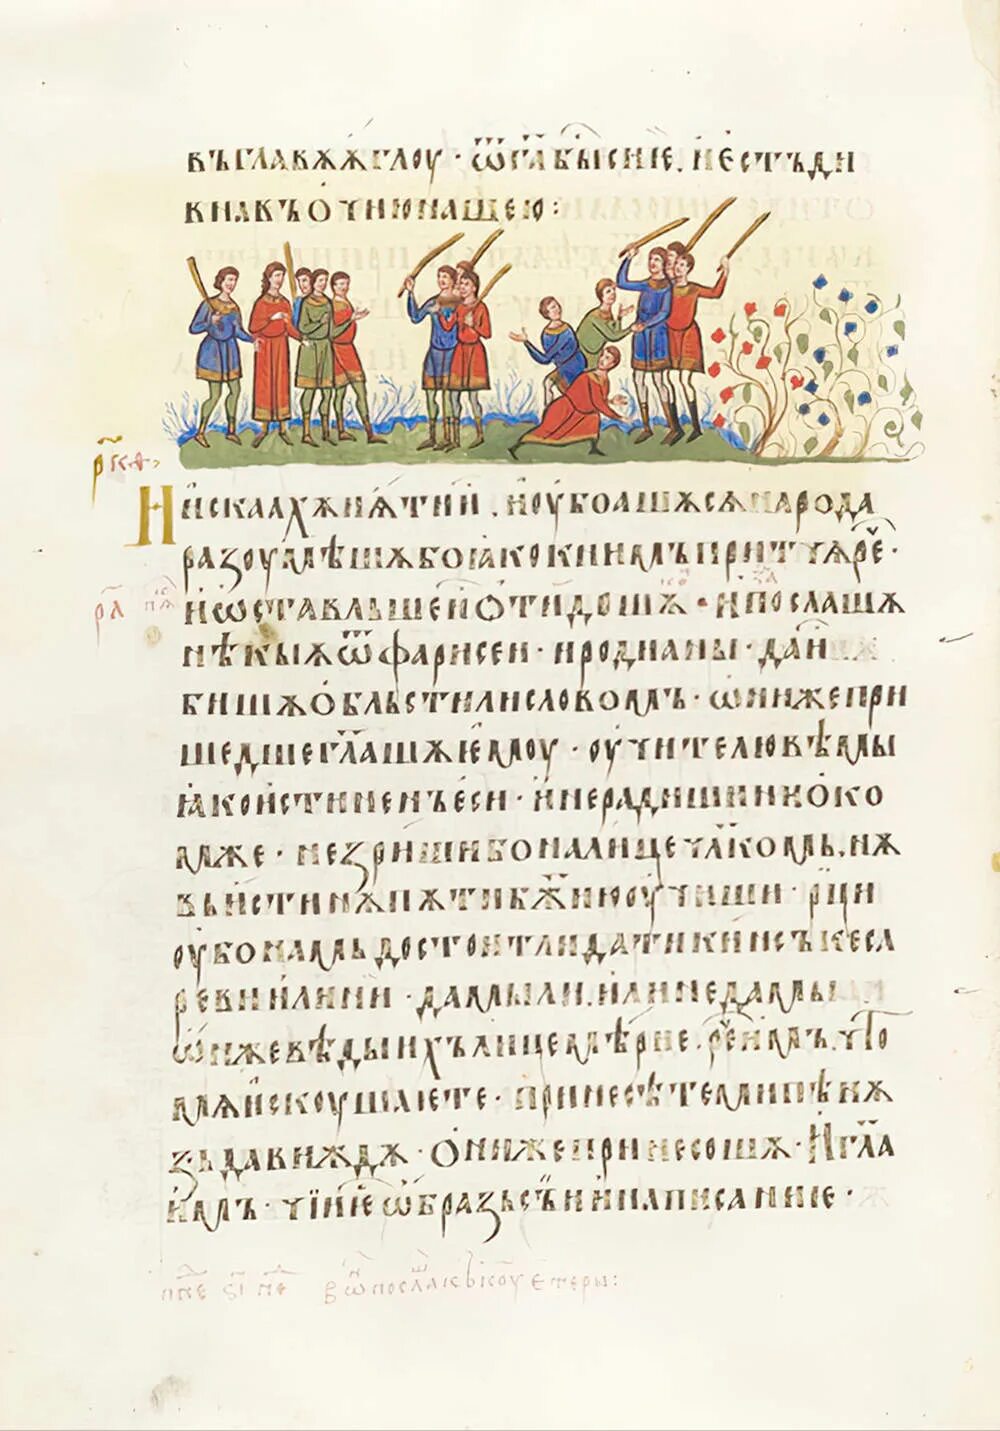 въглавѫѫглоу · ѿга҃бы́сисиѥ. и҆е́стъди
вилвъо҆чиюнашею:
рк҃а
Иискаахѫи҆ѧ́тии҆ . и҆оубоашѫсѧнарода
разоумѣшѫбоꙗкокнимъпритчѫре҃ ·
ра҃
и҆ѡ҆ставльшеи҆о҆тидошѫ · и҆послашѫ
нѣкыѧѿфарисеи · иродианы · даи҆
бишѫо҆бльстилисловомъ · ѡ҆нижепри
шедшегл҃ашѫѥ҆моу · оу҆чителювѣмы
ꙗ҆кои҆стиненъе҆си · и҆нерадишинио҆ко
мже · незришибоналицечл҃комь. нѫ
вьи҆стинѫпѫтибж҃июоу҆чиши · рц҃и
оу҆бонамьдостоитлидатикии҆съкеса
ревии҆лини · дамыли, и҆линедамы
ѡ҆нжевѣдыихълицемѣрие. ре҃и҆мъ. что
мѧи҆скоушаѥте · принесѣтемипѣнѧ
зьдавиждѫ · о҆нижепринесошѫ · И҆гл҃а
и҆мъ · чїиѥѡ҆бразьсъ́ии҆написаниѥ ·